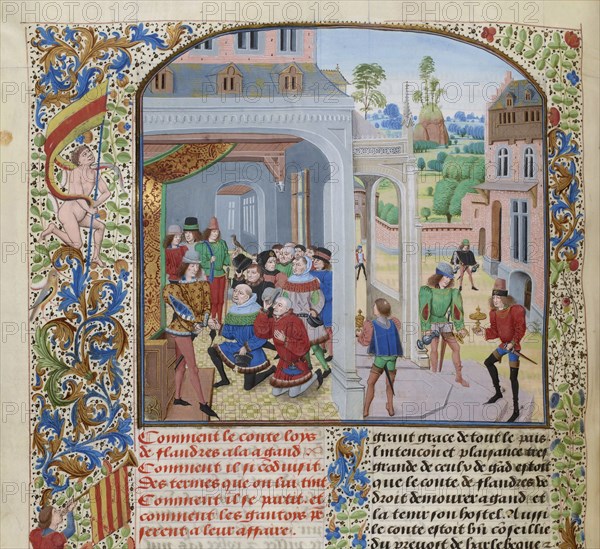 Comment le conte loys
de flandres ala a gand
Comment il se coduisit
Des termes que on lui tint
Comment il se partit. et
comment les gantois p
serent a leur affaire.
grant grace de tout le pais
lintencon et plaisance tres
grande de ceulx de gād estoit
que le conte de flandres de
droit demourer a gand et
la tenir son hostel. Aussi
le conte estoit bn cōseillie
du prevost de harlebeque
PHOTO12